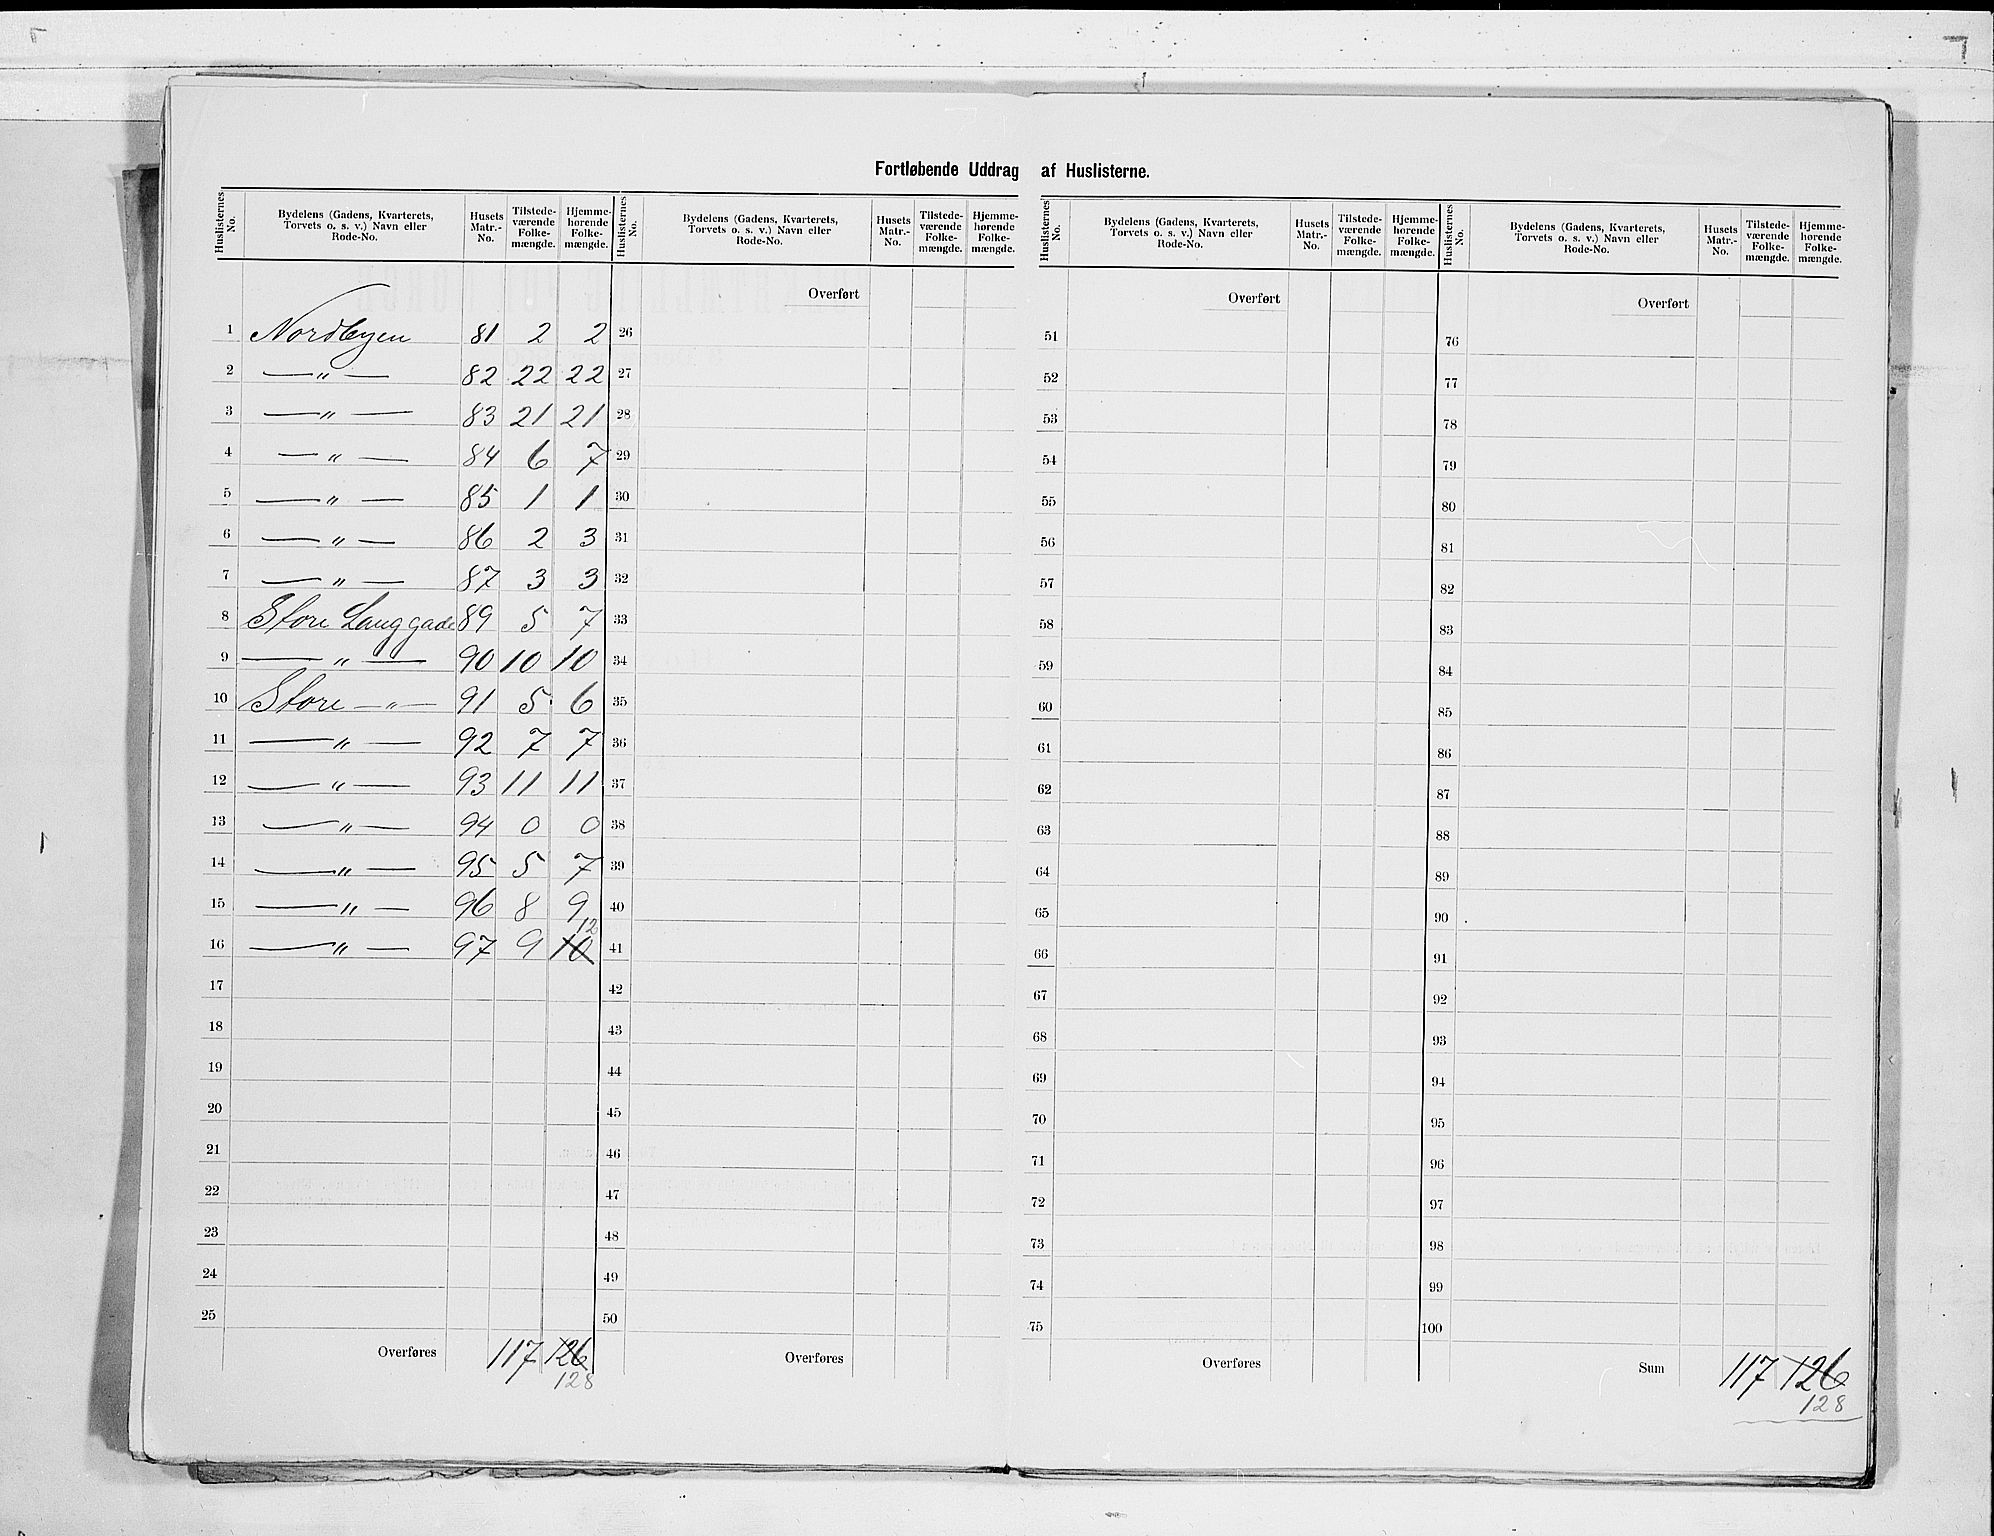 Fortløbende Uddrag af Huslisterne.
Huslisternes No. Bydelens (Gadens, Kvarterets, Torvets o. s. v.) Navn eller Rode-No. Husets Matr.-No. Tilstede-værende Folke-mængde. Hjemme-hørende Folke-mængde. Huslisternes No. Bydelens (Gadens, Kvarterets, Torvets o. s. v.) Navn eller Rode-No. Husets Matr.-No. Tilstede-værende Folke-mængde. Hjemme-hørende Folke-mængde. Huslisternes No. Bydelens (Gadens, Kvarterets, Torvets o. s. v.) Navn eller Rode-No. Husets Matr.-No. Tilstede-værende Folke-mængde. Hjemme-hørende Folke-mængde. Huslisternes No. Bydelens (Gadens, Kvarterets, Torvets o. s. v.) Navn eller Rode-No. Husets Matr.-No. Tilstede-værende Folke-mængde. Hjemme-hørende Folke-mængde.
Overført Overført Overført
1 Nordbyen 81 2 2 26 51 76
2 — „ — 82 22 22 27 52 77
3 — „ — 83 21 21 28 53 78
4 — „ — 84 6 7 29 54 79
5 — „ — 85 1 1 30 55 80
6 — „ — 86 2 3 31 56 81
7 — „ — 87 3 3 32 57 82
8 Store Langgade 89 5 7 33 58 83
9 — „ — 90 10 10 34 59 84
10 Store — „ — 91 5 6 35 60 85
11 — „ — 92 7 7 36 61 86
12 — „ — 93 11 11 37 62 87
13 — „ — 94 0 0 38 63 88
14 — „ — 95 5 7 39 64 89
15 — „ — 96 8 9 40 65 90
12
16 — „ — 97 9 10 41 66 91
17 42 67 92
18 43 68 93
19 44 69 94
20 45 70 95
21 46 71 96
22 47 72 97
23 48 73 98
24 49 74 99
25 50 75 100
Overføres 117 126 Overføres Overføres Sum 117 126
128 128